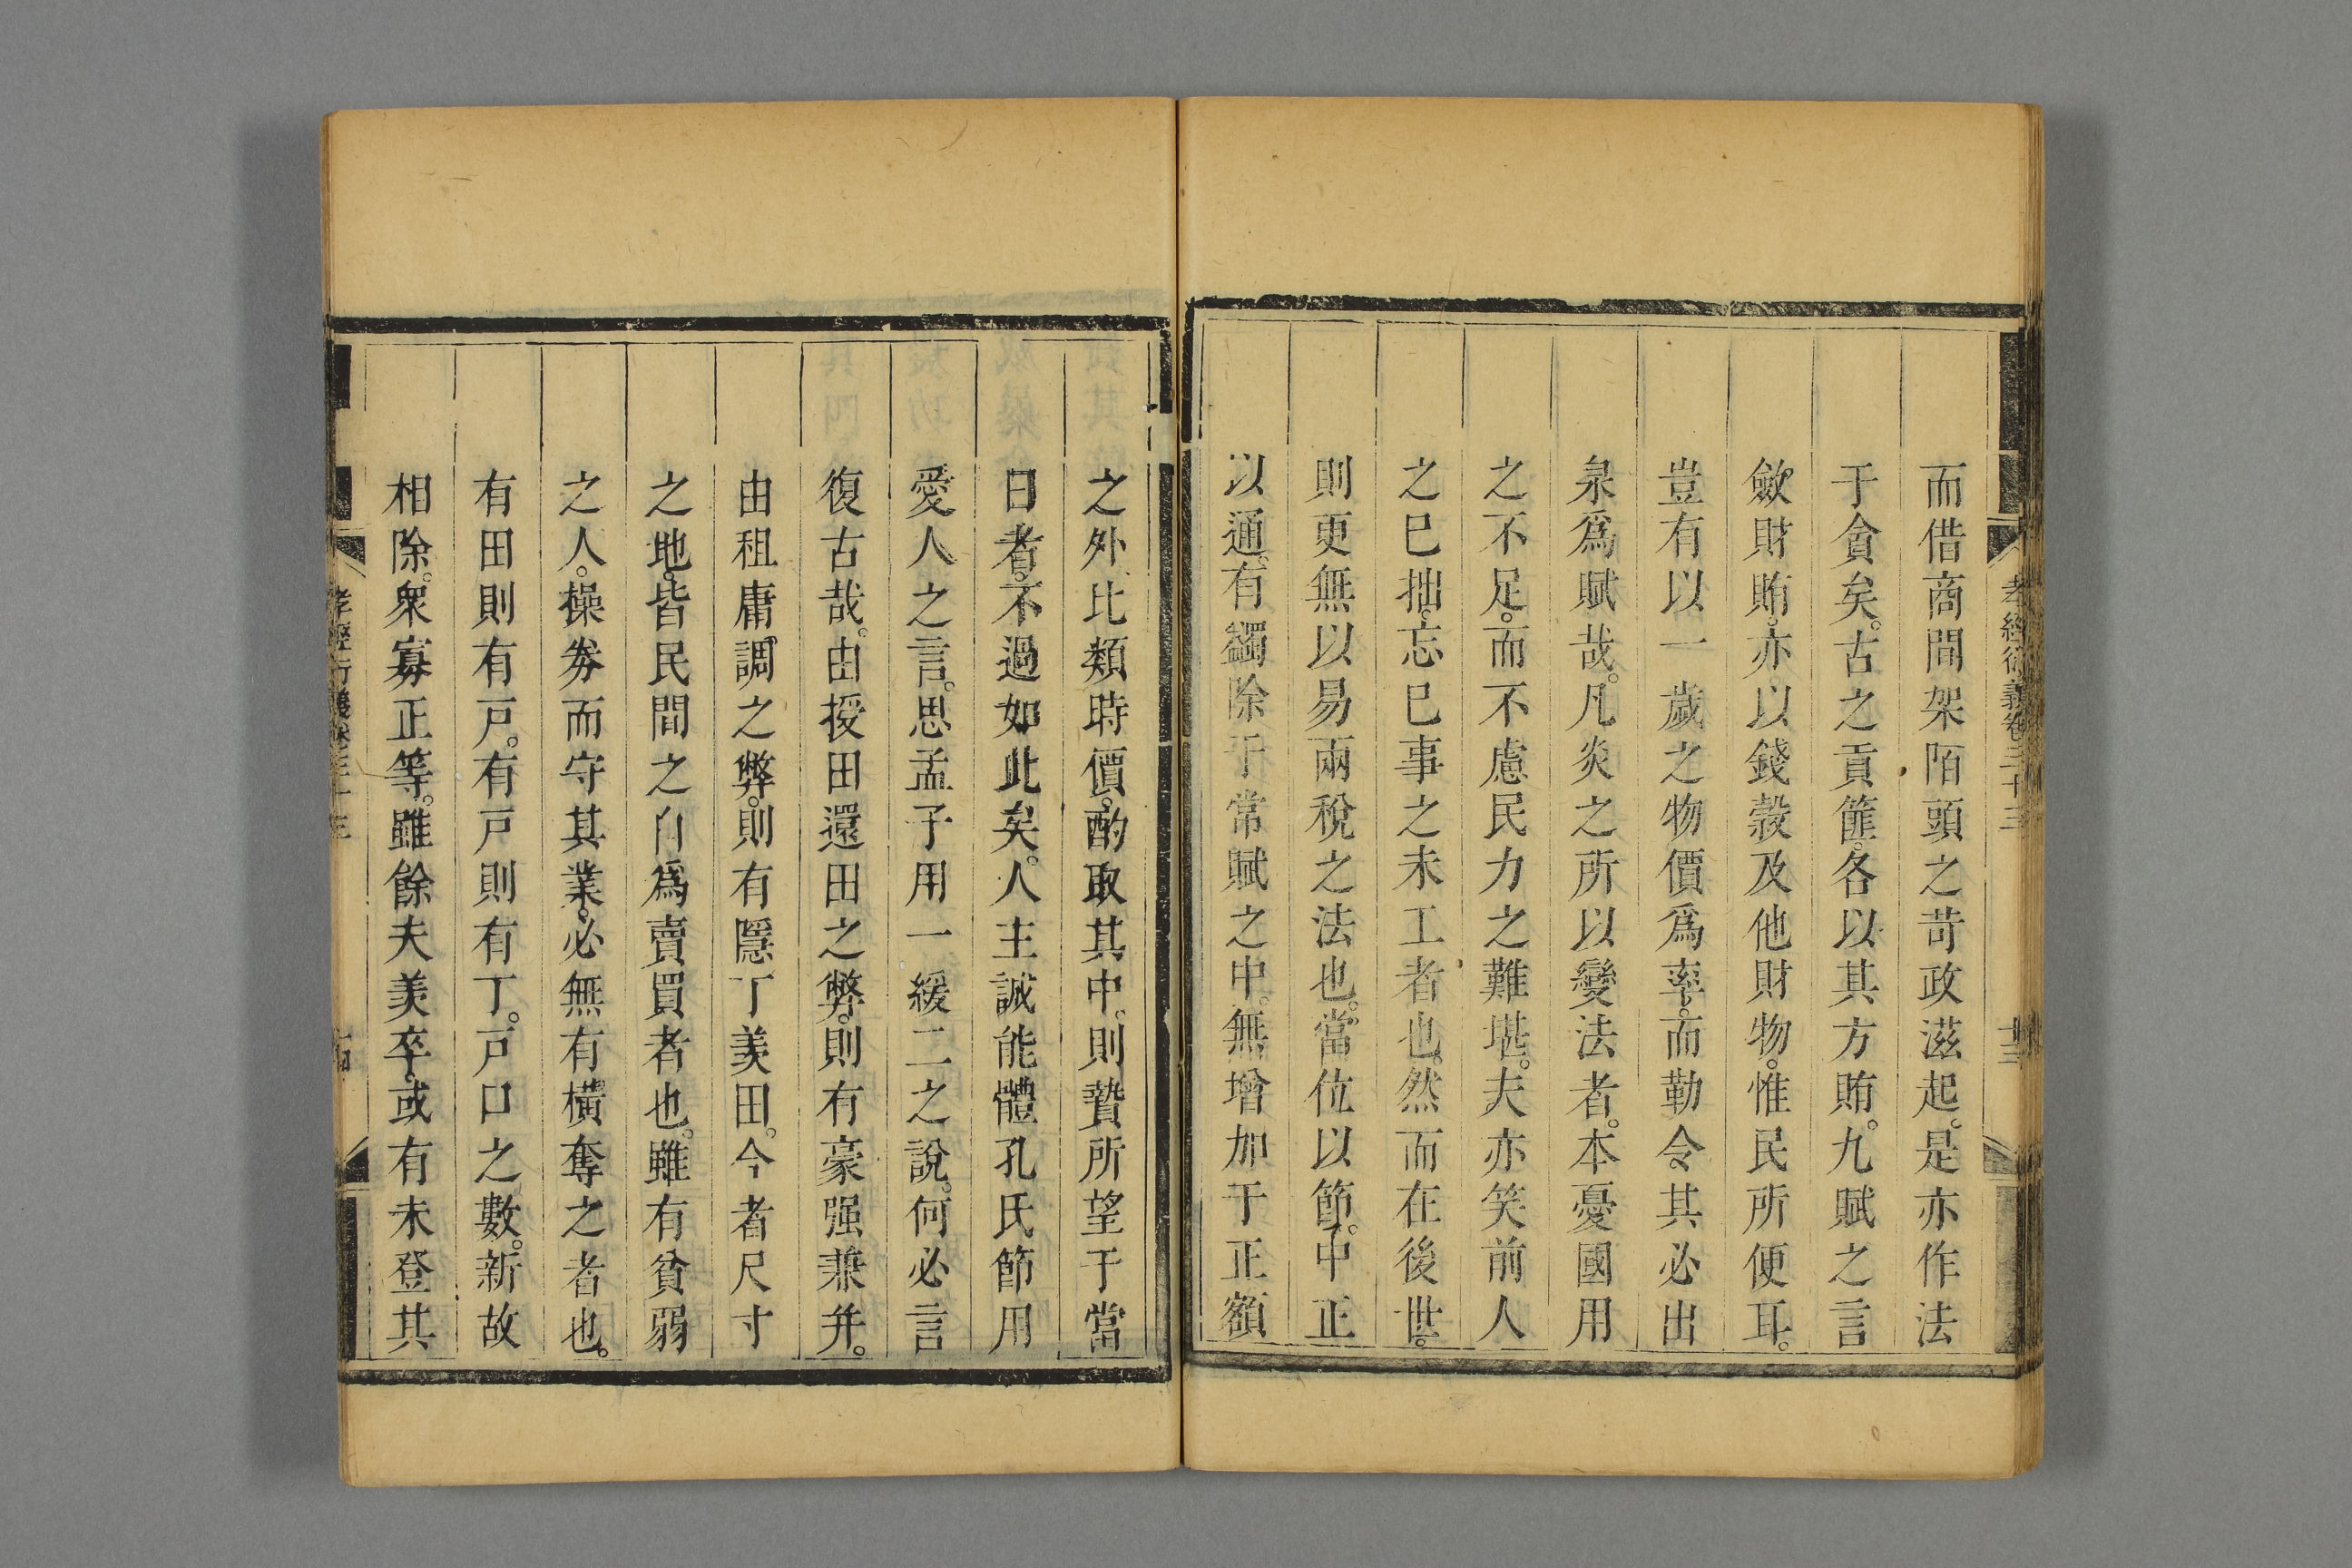 孝經衍義卷三十三
十三
而借商間架陌頭之苛政滋起。是亦作法
于貪矣。古之貢篚。各以其方賄。九賦之言
歛財賄。亦以錢穀及他財物。惟民所便耳。
豈有以一歲之物價爲率。而勒令其必出
泉爲賦哉。凡炎之所以變法者。本憂國用
之不足。而不慮民力之難堪。夫亦笑前人
之巳拙。忘巳事之未工者也。然而在後世。
則更無以易兩稅之法也。當位以節。中正
以通。有蠲除于常賦之中。無增加于正額
之外。比類時價。酌取其中。則贄所望于當
日者。不過如此矣。人主誠能體孔氏節用
愛人之言。思孟子用一緩二之說。何必言
復古哉。由授田還田之弊。則有豪强兼并。
由租庸調之弊。則有隱丁羨田。今者尺寸
之地。皆民間之自爲賣買者也。雖有貧弱
之人。操劵而守其業。必無有橫奪之者也。
有田則有戸。有戸則有丁。戸口之數。新故
相除。衆寡正等。雖餘夫羨卒。或有未登其
孝經衍義卷三十三
十四